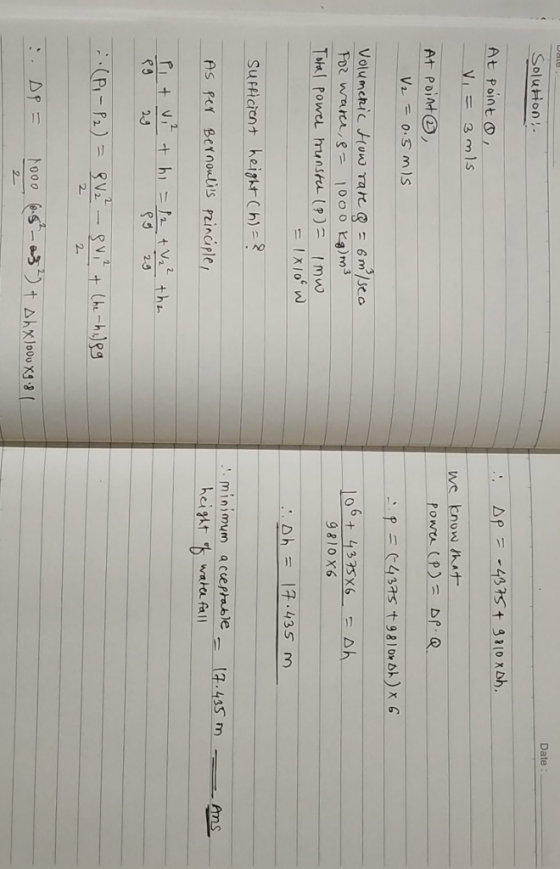 Date:
Solution:-
At point ①,
V₁ = 3 m/s
At point ②,
V₂ = 0.5 m/s
Volumetric flow rate Q = 6 m³/sec
For water, ρ = 1000 kg/m³
Total power transfer (P) = 1 MW
= 1 × 10⁶ W
Sufficient height (h) = ?
As per Bernoulis principle,
P₁/ρg + V₁²/2g + h₁ = P₂/ρg + V₂²/2g + h₂
∴ (P₁ - P₂) = ρV₂²/2 - ρV₁²/2 + (h₂ - h₁)ρg
∴ Δp = 1000/2 (0.5² - 3²) + Δh × 1000 × 9.81
Date :
∴ Δp = -4375 + 9810 × Δh.
we know that
power (P) = Δp · Q
∴ P = (-4375 + 9810 × Δh) × 6
10⁶ + 4375 × 6 / 9810 × 6 = Δh
∴ Δh = 17.435 m
∴ minimum acceptable = 17.435 m — Ans
height of water fall